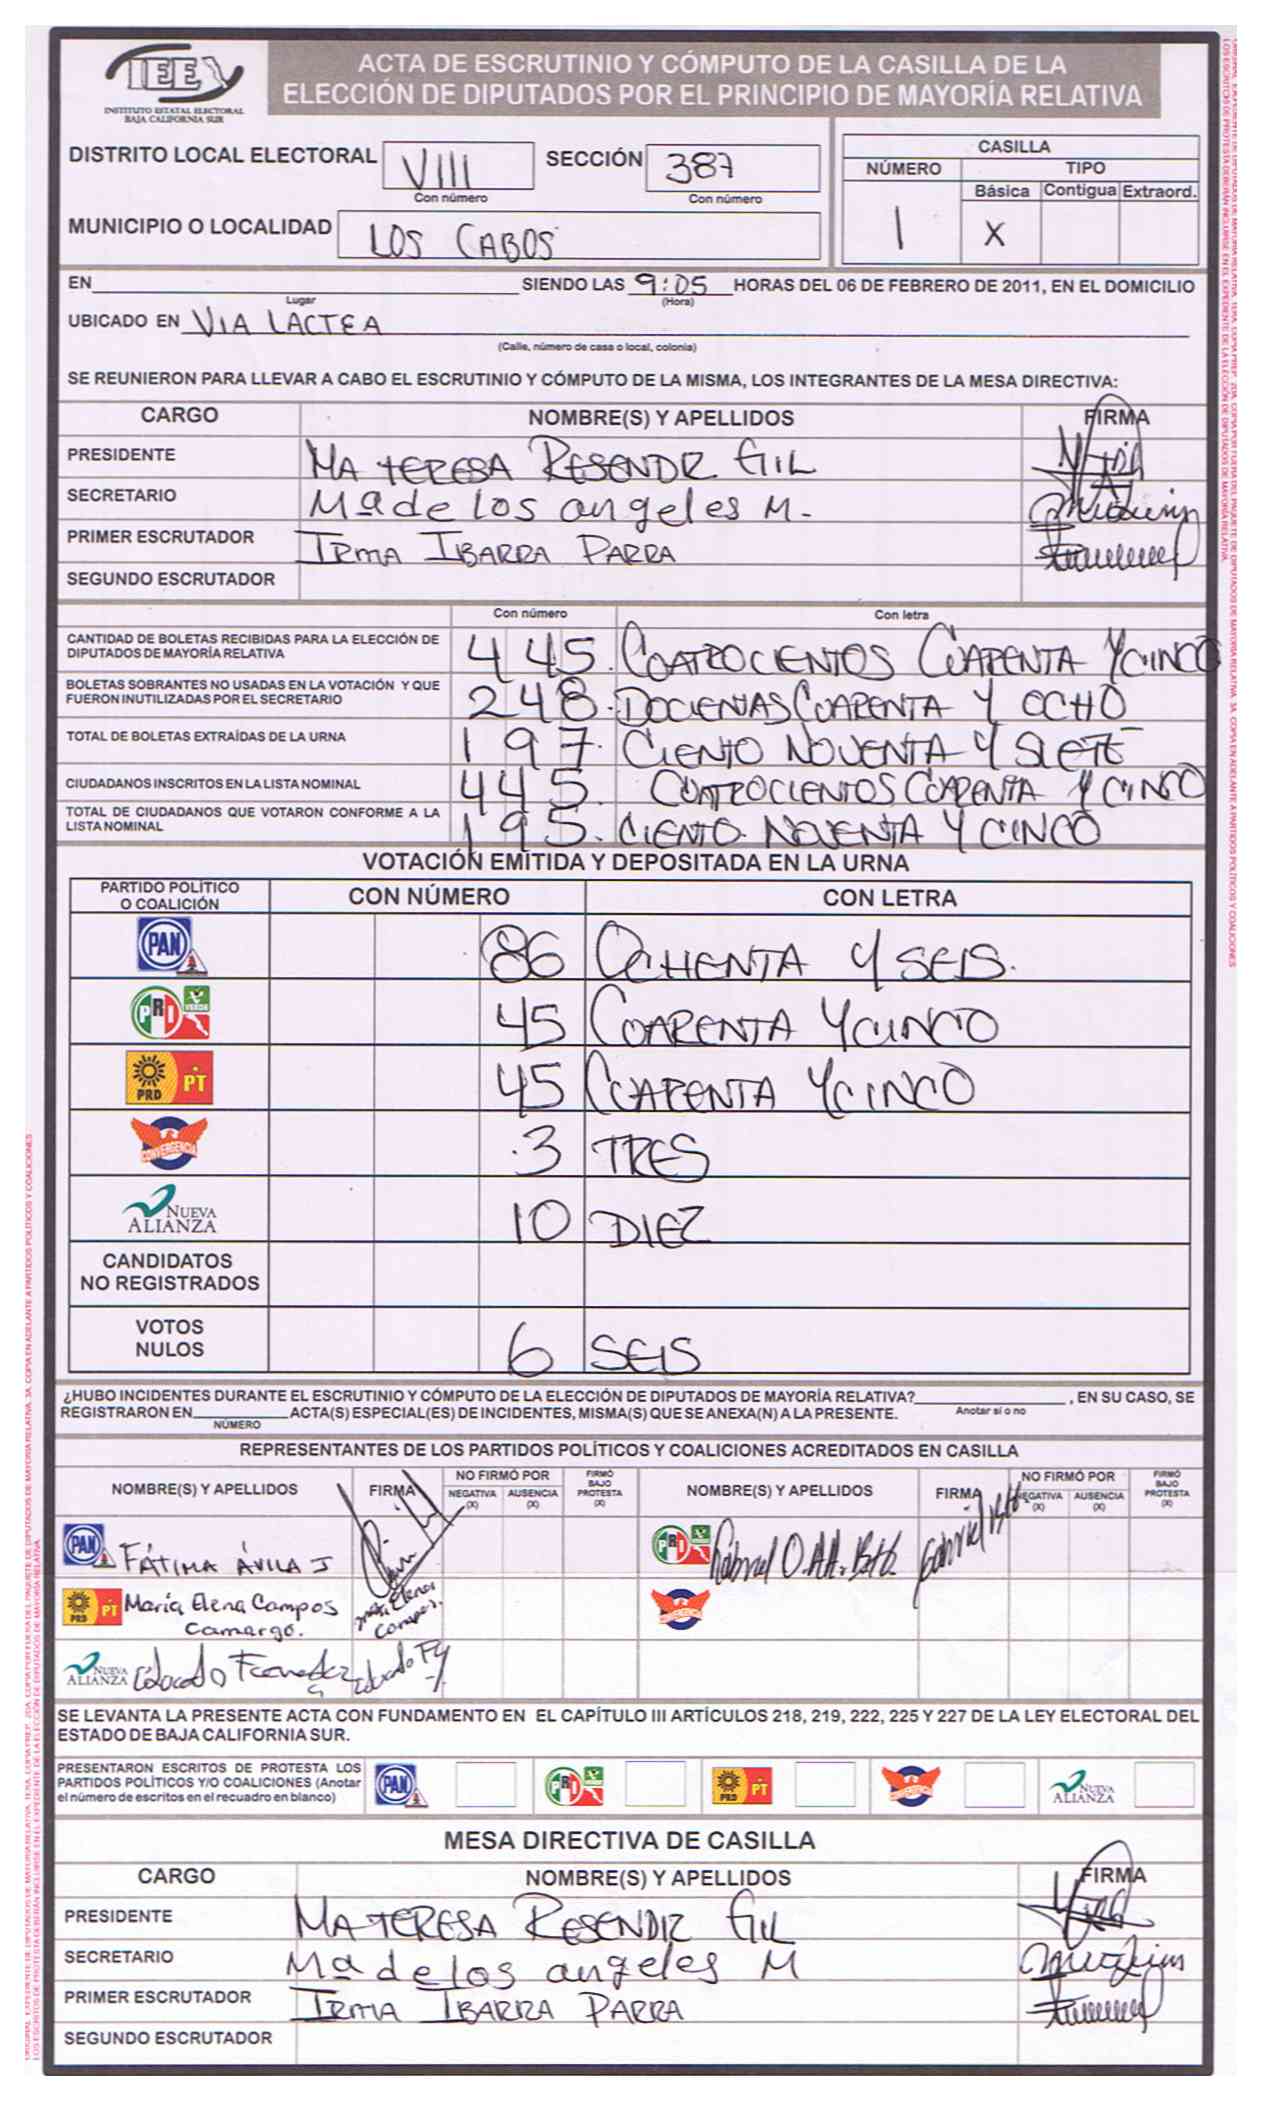 IEE
INSTITUTO ESTATAL ELECTORAL
BAJA CALIFORNIA SUR
ACTA DE ESCRUTINIO Y CÓMPUTO DE LA CASILLA DE LA
ELECCIÓN DE DIPUTADOS POR EL PRINCIPIO DE MAYORÍA RELATIVA
DISTRITO LOCAL ELECTORAL VIII SECCIÓN 387
Con número Con número
MUNICIPIO O LOCALIDAD LOS CABOS
CASILLA
NÚMERO TIPO
Básica Contigua Extraord.
1 X
EN SIENDO LAS 9:05 HORAS DEL 06 DE FEBRERO DE 2011, EN EL DOMICILIO
Lugar (Hora)
UBICADO EN VIA LACTEA
(Calle, número de casa o local, colonia)
SE REUNIERON PARA LLEVAR A CABO EL ESCRUTINIO Y CÓMPUTO DE LA MISMA, LOS INTEGRANTES DE LA MESA DIRECTIVA:
CARGO NOMBRE(S) Y APELLIDOS FIRMA
PRESIDENTE MA TERESA RESENDIZ GIL
SECRETARIO Ma de los angeles M.
PRIMER ESCRUTADOR IRMA IBARRA PARRA
SEGUNDO ESCRUTADOR
Con número Con letra
CANTIDAD DE BOLETAS RECIBIDAS PARA LA ELECCIÓN DE
DIPUTADOS DE MAYORÍA RELATIVA 445. COATROCIENTOS CUARENTA Y CINCO
BOLETAS SOBRANTES NO USADAS EN LA VOTACIÓN Y QUE
FUERON INUTILIZADAS POR EL SECRETARIO 248. DOCIENTAS COARENTA Y OCHO
TOTAL DE BOLETAS EXTRAÍDAS DE LA URNA 197. CIENTO NOVENTA Y SIETE
CIUDADANOS INSCRITOS EN LA LISTA NOMINAL 445. COATROCIENTOS COARENTA Y CINCO
TOTAL DE CIUDADANOS QUE VOTARON CONFORME A LA
LISTA NOMINAL 195. CIENTO NOVENTA Y CINCO
VOTACIÓN EMITIDA Y DEPOSITADA EN LA URNA
PARTIDO POLÍTICO
O COALICIÓN CON NÚMERO CON LETRA
PAN 86 OCHENTA Y SEIS.
PRI VERDE 45 COARENTA Y CINCO
PRD PT 45 CUARENTA Y CINCO
CONVERGENCIA 3 TRES
NUEVA ALIANZA 10 DIEZ
CANDIDATOS
NO REGISTRADOS
VOTOS
NULOS 6 SEIS
¿HUBO INCIDENTES DURANTE EL ESCRUTINIO Y CÓMPUTO DE LA ELECCIÓN DE DIPUTADOS DE MAYORÍA RELATIVA? , EN SU CASO, SE
Anotar sí o no
REGISTRARON EN ACTA(S) ESPECIAL(ES) DE INCIDENTES, MISMA(S) QUE SE ANEXA(N) A LA PRESENTE.
NÚMERO
REPRESENTANTES DE LOS PARTIDOS POLÍTICOS Y COALICIONES ACREDITADOS EN CASILLA
NOMBRE(S) Y APELLIDOS FIRMA NO FIRMÓ POR NEGATIVA (X) AUSENCIA (X) FIRMÓ BAJO PROTESTA (X) NOMBRE(S) Y APELLIDOS FIRMA NO FIRMÓ POR NEGATIVA (X) AUSENCIA (X) FIRMÓ BAJO PROTESTA (X)
PAN FÁTIMA ÁVILA J PRI VERDE Gabriel O.
PRD PT María Elena Campos CONVERGENCIA
Camargo. María Elena Campos.
NUEVA ALIANZA
SE LEVANTA LA PRESENTE ACTA CON FUNDAMENTO EN EL CAPÍTULO III ARTÍCULOS 218, 219, 222, 225 Y 227 DE LA LEY ELECTORAL DEL
ESTADO DE BAJA CALIFORNIA SUR.
PRESENTARON ESCRITOS DE PROTESTA LOS
PARTIDOS POLÍTICOS Y/O COALICIONES (Anotar
el número de escritos en el recuadro en blanco)
PAN PRI VERDE PRD PT CONVERGENCIA NUEVA ALIANZA
MESA DIRECTIVA DE CASILLA
CARGO NOMBRE(S) Y APELLIDOS FIRMA
PRESIDENTE MA TERESA RESENDIZ GIL
SECRETARIO Ma de los angeles M
PRIMER ESCRUTADOR IRMA IBARRA PARRA
SEGUNDO ESCRUTADOR